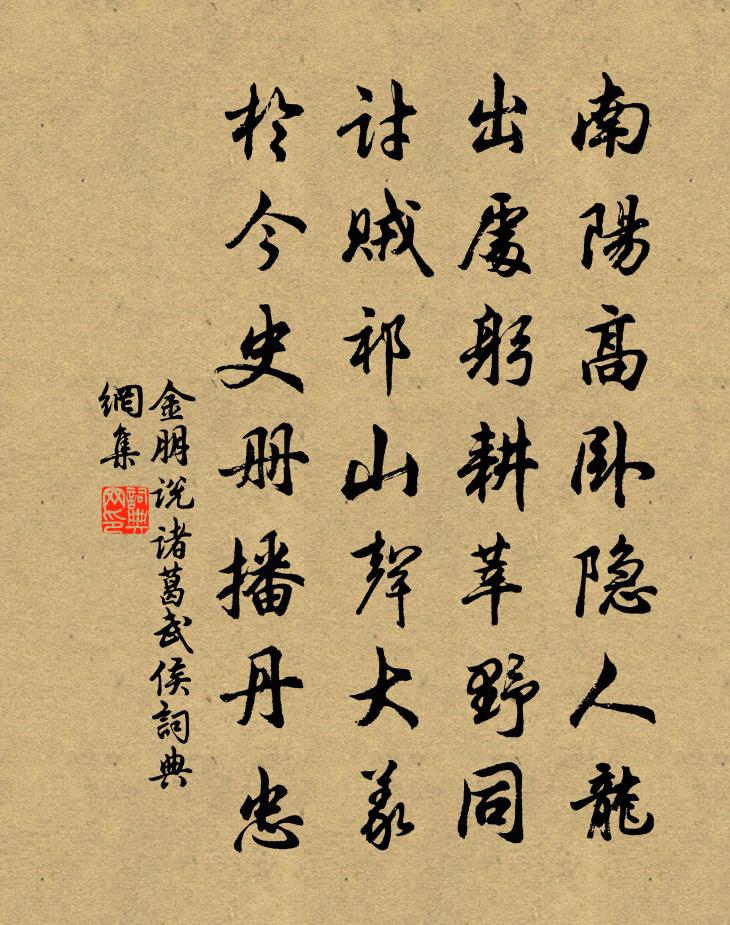 南陽高臥隐人龍
出處躬耕莘野同
討賊祁山聲大義
於今史册播丹忠
金朋說諸葛武侯詞典
網集
詞典
网印